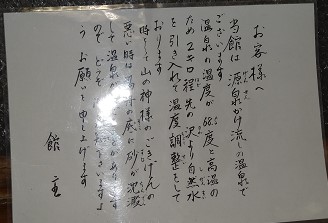 お客様へ
当館は源泉かけ流しの温泉で
ございます
温泉の温度が66度と高温の
ため2キロ程先の沢より自然水
を引き入れて温度調整をして
おります
時として山の神様のごきげんの
悪い時は湯舟の底に砂が沈澱
して温泉
のでどうぞ
うお願いを申し上げます
館主